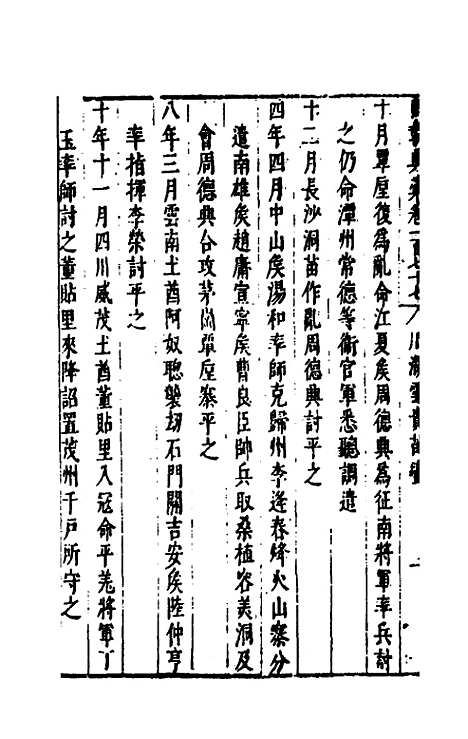 十月覃垕復為亂命江夏矦周德興為征南將軍率兵討
之仍命潭州常德等衛官軍悉聽調遣
十二月長沙洞苗作亂周德興討平之
四年四月中山矦湯和率師克歸州李逢春烽火山寨分
遣南雄矦趙庸宣寧矦曹良臣帥兵取桑植容美洞及
會周德興合攻茅岡覃垕寨平之
八年三月雲南土酋阿奴聰襲刼石門關吉安矦陸仲亨
率指揮李榮討平之
十年十一月四川威茂土酋董貼里入寇命平羌將軍丁
玉率師討之董貼里來降詔置茂州千戸所守之